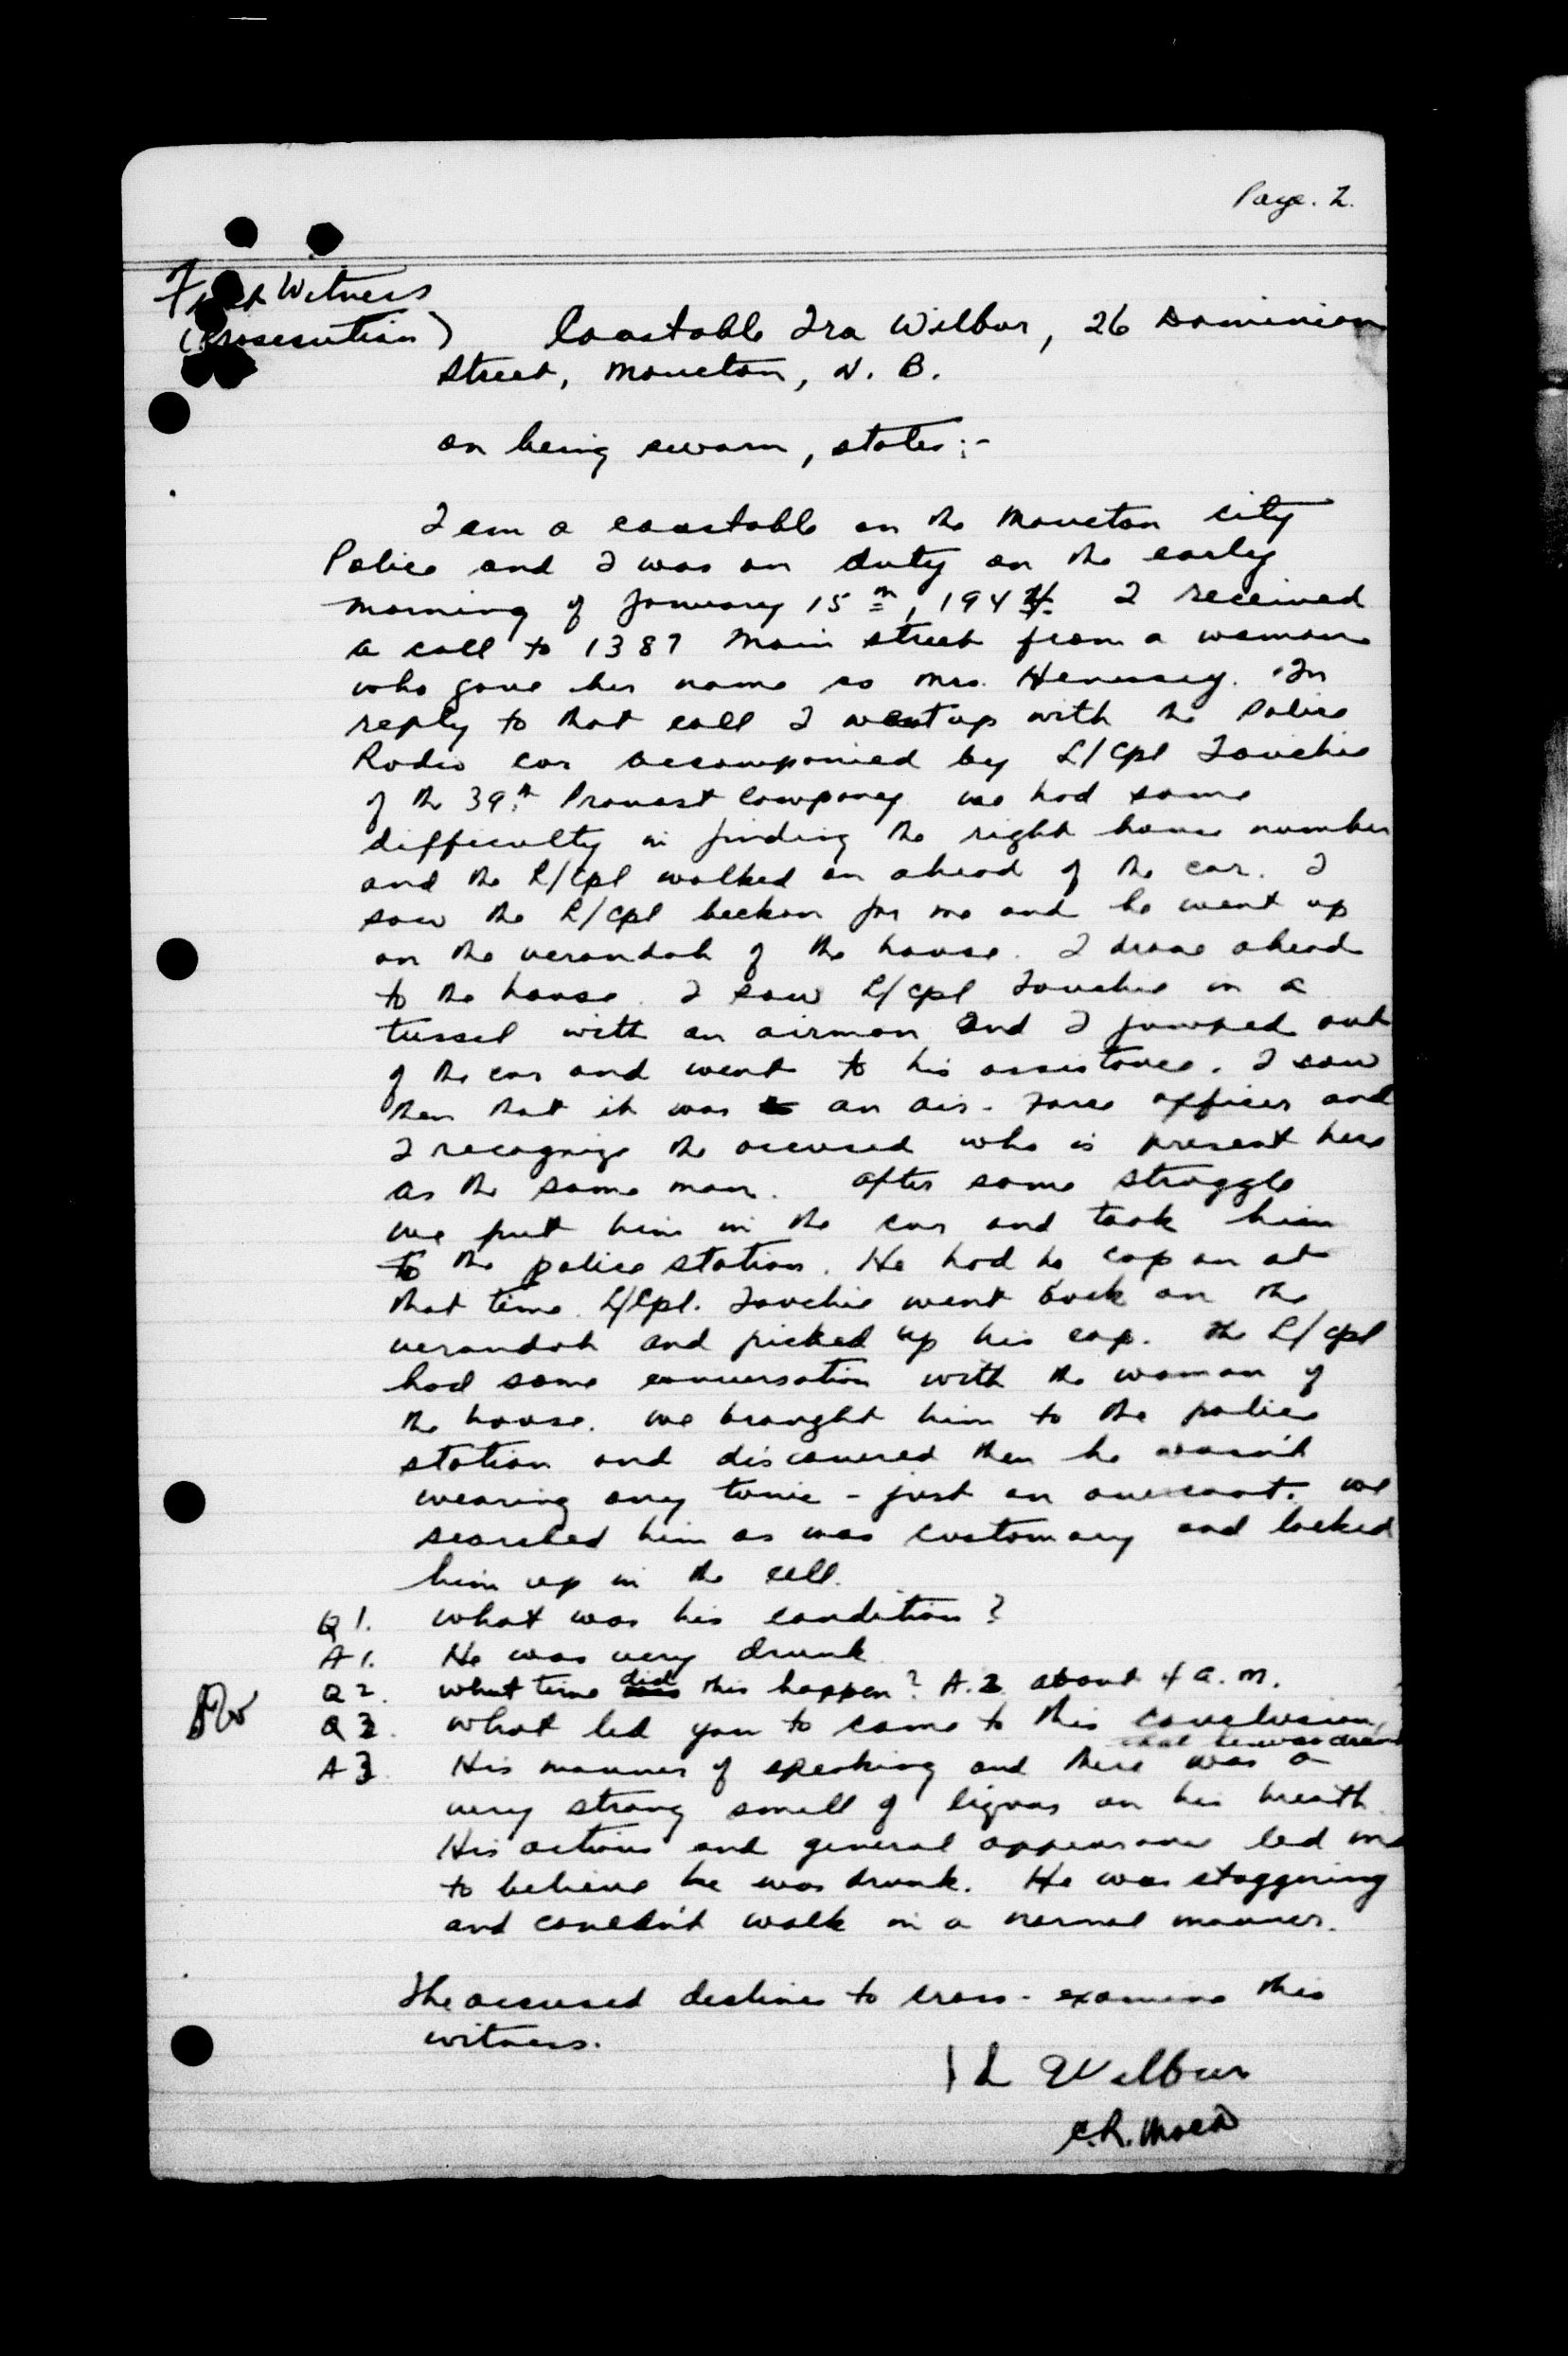 Page. 2.
First Witness
(Prosecution)
Constable Ira Wilbur, 26 Dominion
Street, Moncton, N. B.
on being sworn, states:-
I am a constable on the Moncton city
Police and I was on duty on the early
morning of January 15th, 1944. I received
a call to 1387 Main street from a woman
who gave her name as Mrs. Henussey. In
reply to that call I went up with the Police
Radio car accompanied by L/Cpl Touchie
of the 39th Provost Company we had some
difficulty in finding the right house number
and the L/Cpl walked on ahead of the car. I
saw the L/Cpl beckon for me and he went up
on the verandah of the house. I drove ahead
to the house. I saw L/Cpl Touchie in a
tussel with an airman and I jumped out
of the car and went to his assistance. I saw
then that it was an air-force officer and
I recognize the accused who is present here
as the same man. After some struggle
we put him in the car and took him
to the police station. He had no cap on at
that time. L/Cpl. Touchie went back on the
verandah and picked up his cap. The L/Cpl
had some conversation with the woman of
the house. We brought him to the police
station and discovered then he wasn't
wearing any tunic - just an overcoat. We
searched him as was customary and locked
him up in the cell.
Q1. What was his condition?
A1. He was very drunk
Q2. What time did this happen? A.2 about 4 a.m.
Q3. What led you to come to this conclusion,
that he was drunk
A3. His manner of speaking and there was a
very strong smell of liquor on his breath.
His actions and general appearance led me
to believe he was drunk. He was staggering
and couldn't walk in a normal manner.
The accused declines to cross-examine this
witness.
I L Wilbur